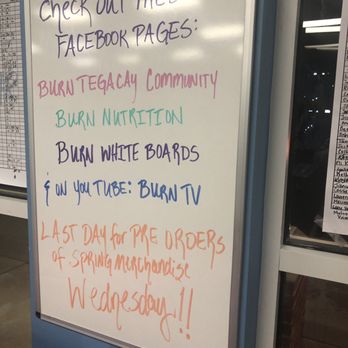 Check out these
FACEBOOK PAGES:
BURN TEGACAY COMMUNITY
BURN NUTRITION
BURN WHITE BOARDS
& ON YOU TUBE: BURN TV
LAST DAY for PRE ORDERS
of SPRING MERCHANDISE
Wednesday!!